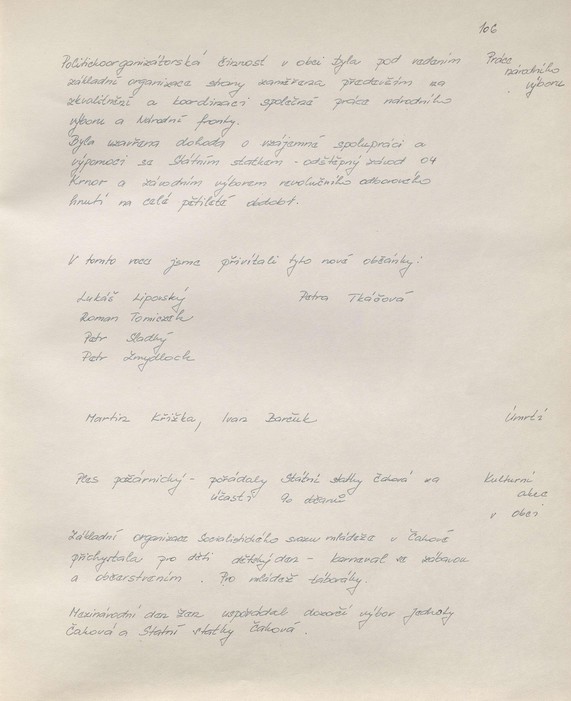 106
Politickoorganizátorská činnost v obci byla pod vedením
základní organizace strany zaměřena především na
zkvalitnění a koordinaci společné práce národního
výboru a Národní fronty.
Byla uzavřena dohoda o vzájemné spolupráci a
výpomoci se Státním statkem - odštěpný závod 04
Krnov a závodním výborem revolučního odborového
hnutí na celé pětileté období.
Práce
národního
výboru
V tomto roce jsme přivítali tyto nové občánky:
Lukáš Lipovský
Petra Tkáčová
Roman Tomiczek
Petr Sladký
Petr Zmydloch
Martin Křižka, Ivan Barčuk
Úmrtí
Ples požárnický - požádaly Státní statky Čaková za
účasti 90 občanů
Kulturní
akce
v obci
Základní organizace Socialistického svazu mládeže v Čakové
přichystala pro děti dětský den - karneval se zábavou
a občerstvením. Pro mládež táboráky.
Mezinárodní den žen uspořádal dozorčí výbor Jednoty
Čaková a Státní statky Čaková.